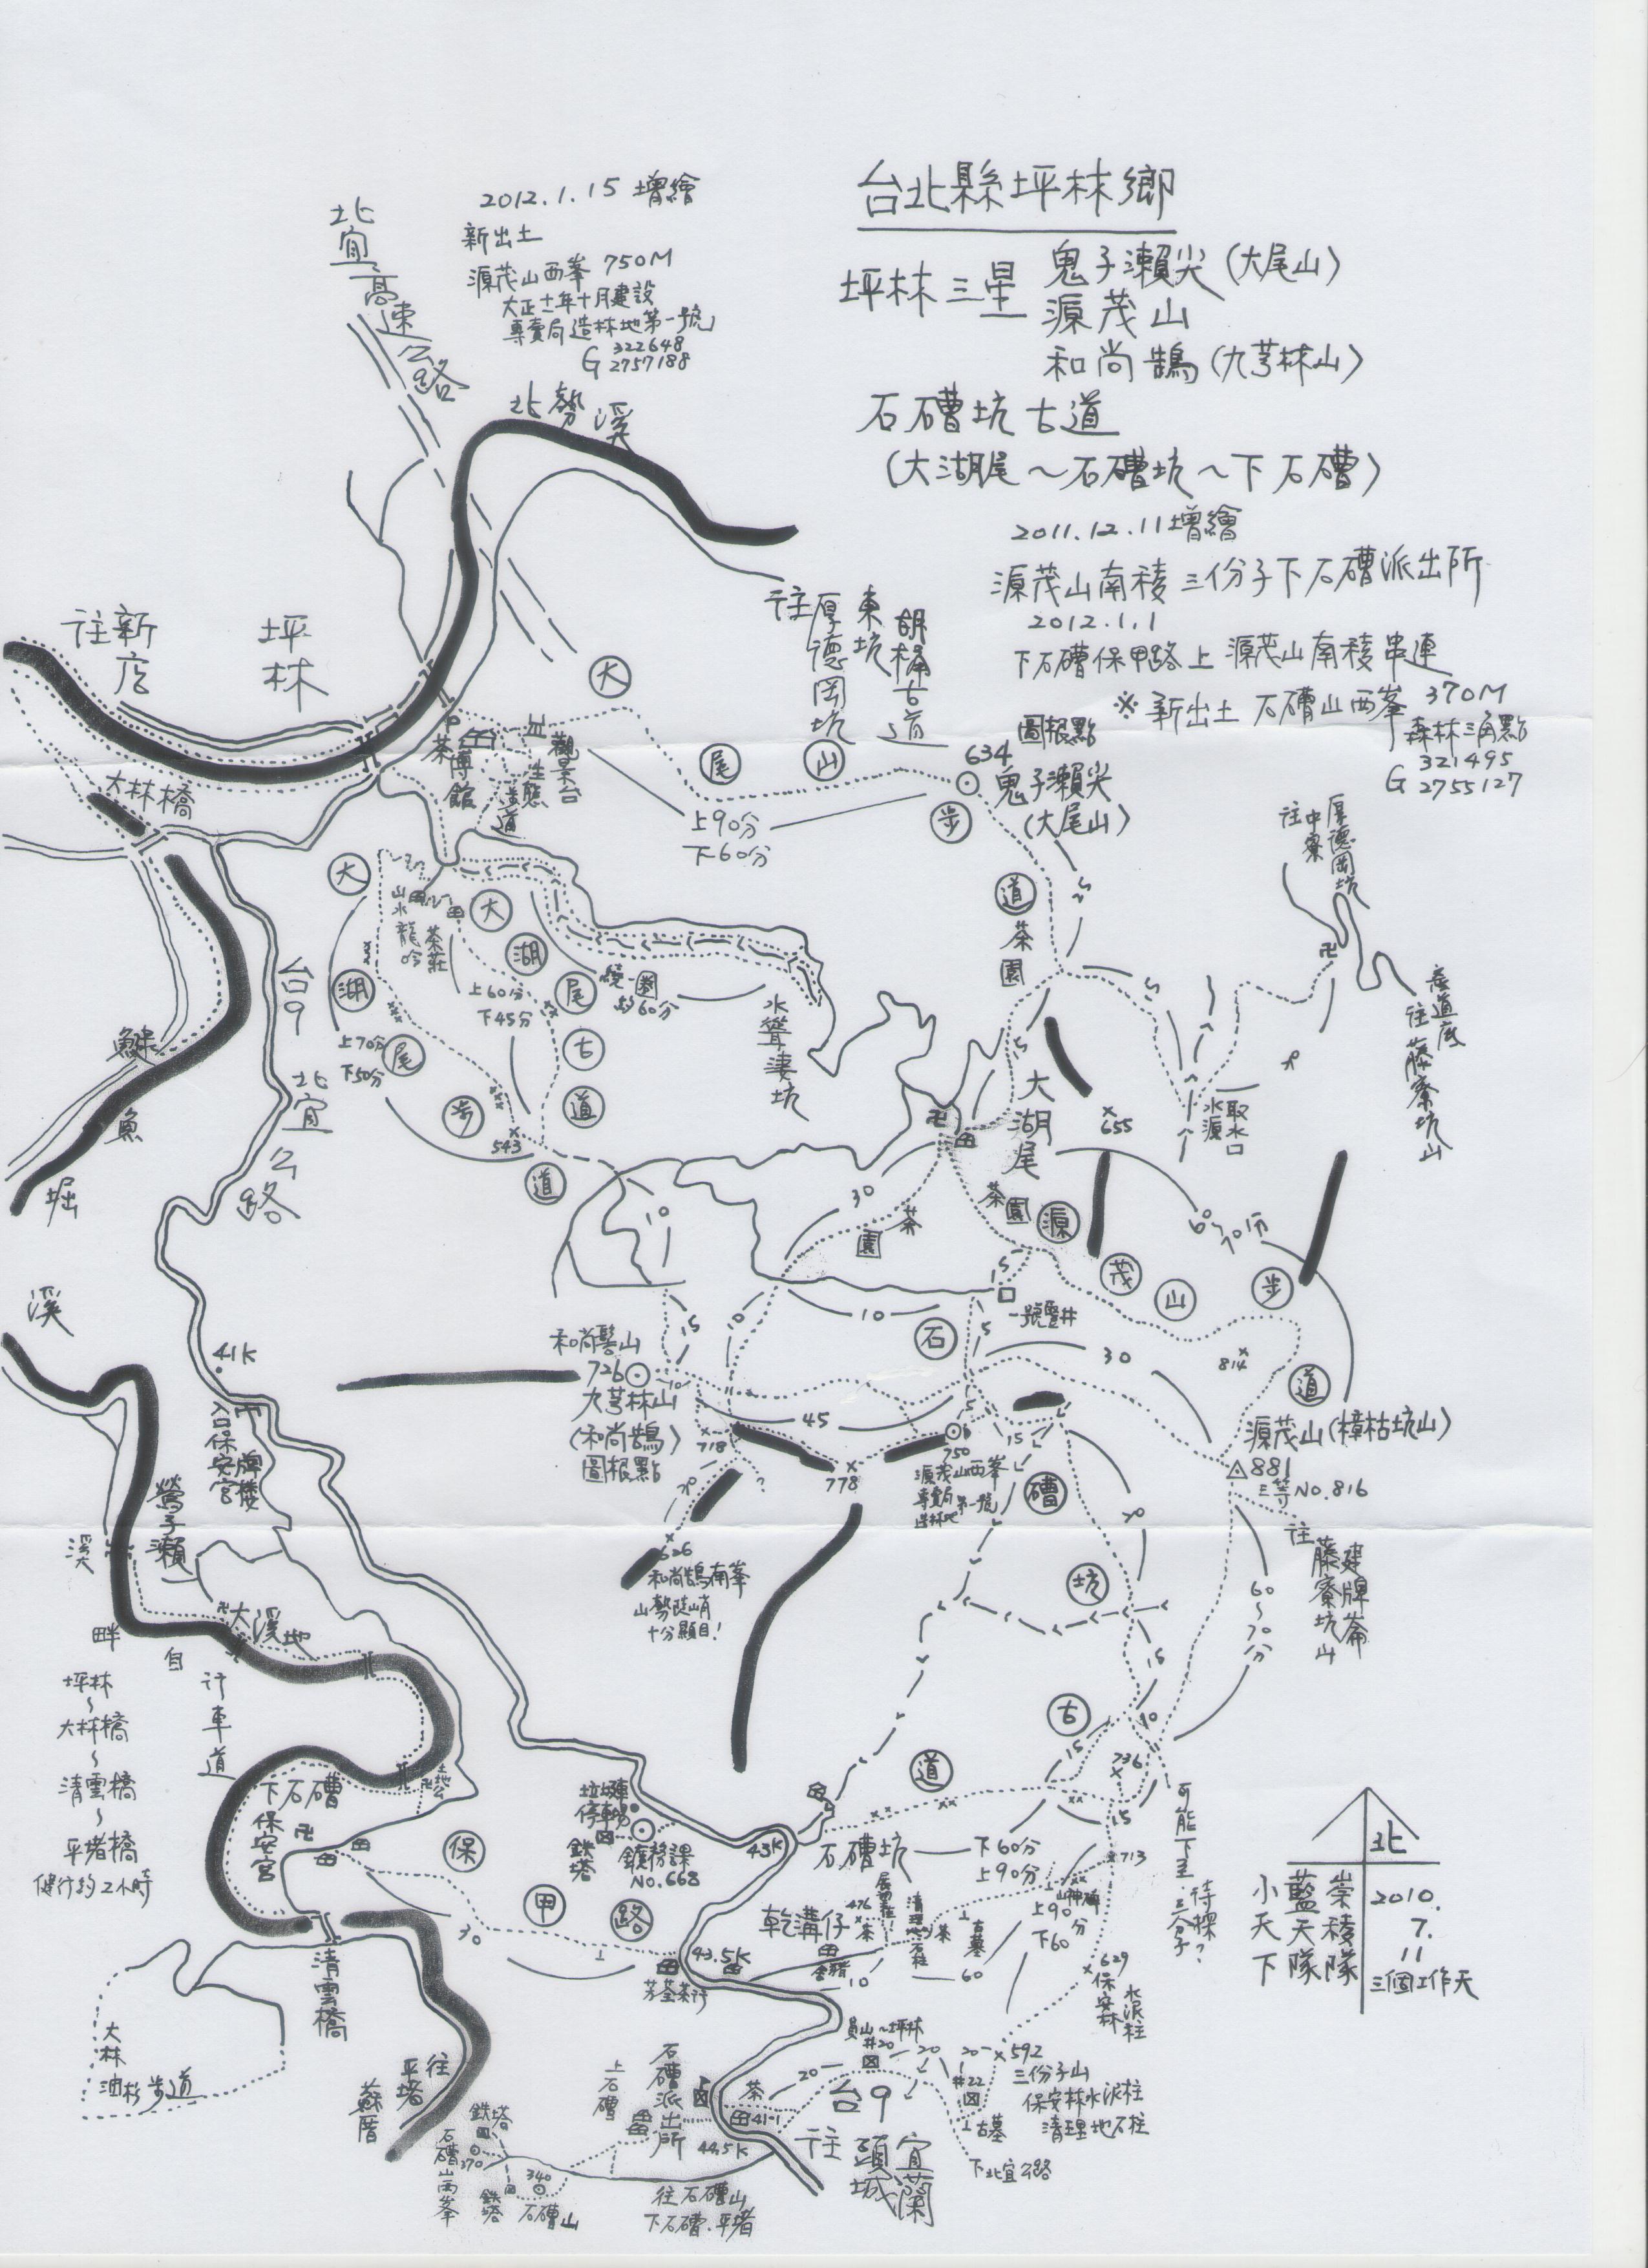 台北縣坪林鄉
坪林三星
鬼子瀨尖(大尾山)
源茂山
和尚鵠(九芎林山)
石䃰坑古道
(大湖尾～石䃰坑～下石䃰)
2011.12.11增繪
源茂山南稜 三份子下石䃰派出所
2012.1.1
下石䃰保甲路上 源茂山南稜串連
※新出土 石䃰山西峯 370M
森林三角點
G 321495
2755127
2012.1.15 增繪
新出土
源茂山西峯 750M
大正十一年十月建設
專賣局造林地第一號
G 322648
2757188
北宜高速公路
北勢溪
往新店
坪林
大林橋
茶博館
觀景台
生態步道
大尾山步道
上90分
下60分
往厚德岡坑
東坑
胡桶古道
圖根點
634
鬼子瀨尖
(大尾山)
茶園
往中寮
厚德岡坑
產道底
往藤寮坑山
取水口
水源
655
大湖尾步道
大湖尾古道
山水龍吟
茶莊
上60分
下45分
繞一圈
約60分
上70分
下50分
543
水聳淒坑
大湖尾
茶園
茶園
30
10
15
15
10
10
5
30
45
台9
北宜公路
鱼堀溪
源茂山步道
60～70分
814
源茂山(樟枯坑山)
881
三等No.816
往藤寮坑山
建牌崙
60～70分
和尚髻山
726
九芎林山
(和尚鵠)
圖根點
718
778
750
源茂山西峯
專賣局
造林地
第一號
626
和尚鵠南峯
山勢陡峭
十分顯目!
石䃰坑古道
15
10
15
736
15
可能下至三份子
待探?
713
41K
入口保安宮牌樓
鶯子瀨
大溪地
溪畔自行車道
坪林
～
大林橋
～
清雲橋
～
平堵橋
健行約2小時
下石䃰
保安宮
土地公
保甲路
30
停車場
鐵塔
鑛務課
No.668
43K
石䃰坑
下60分
上90分
乾溝仔
476
茶
清理地石柱
古墓
上90分
下60
10
60
629
保安林
水泥柱
43.5K
茶行
員山～坪林
#20
20
20
20
#22
592
三份子山
保安林水泥柱
清理地石柱
古墓
下北宜公路
清雲橋
大林油杉步道
往平堵
蘇厝
鉄塔
370
石䃰山西峯
鉄塔
340
石䃰山
上石䃰
石䃰派出所
茶
41-1
44.5K
台9
往頭城
宜蘭
往石䃰山
下石䃰.平堵
北
小天下
藍天隊
崇稜隊
2010.
7.
11
三個工作天